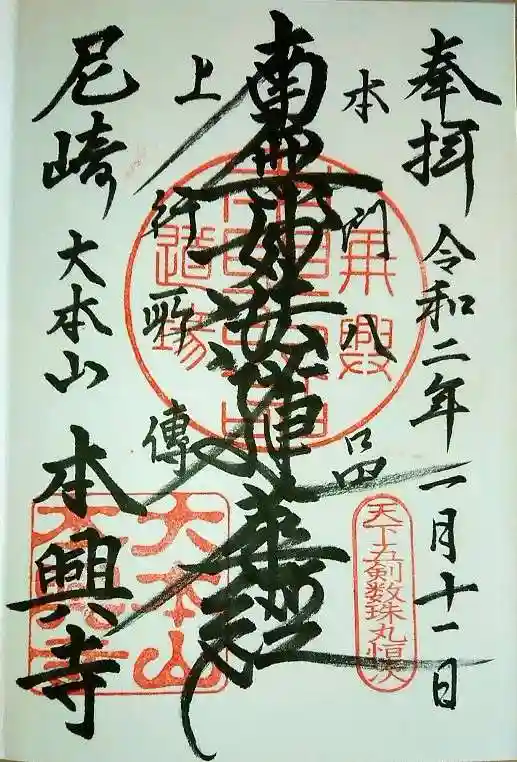 奉拝
令和二年一月十一日
本門八品
南無妙法蓮華経
上行所傳
尼崎
大本山
本興寺
天下五剣数珠丸恒次
大本山